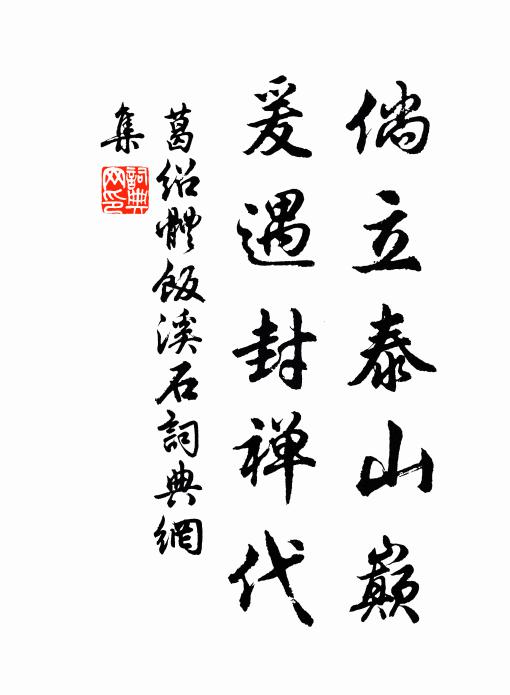 倘立泰山巅
爰遇封禅代
葛绍體飯溪石詞典網
集
詞典
网印